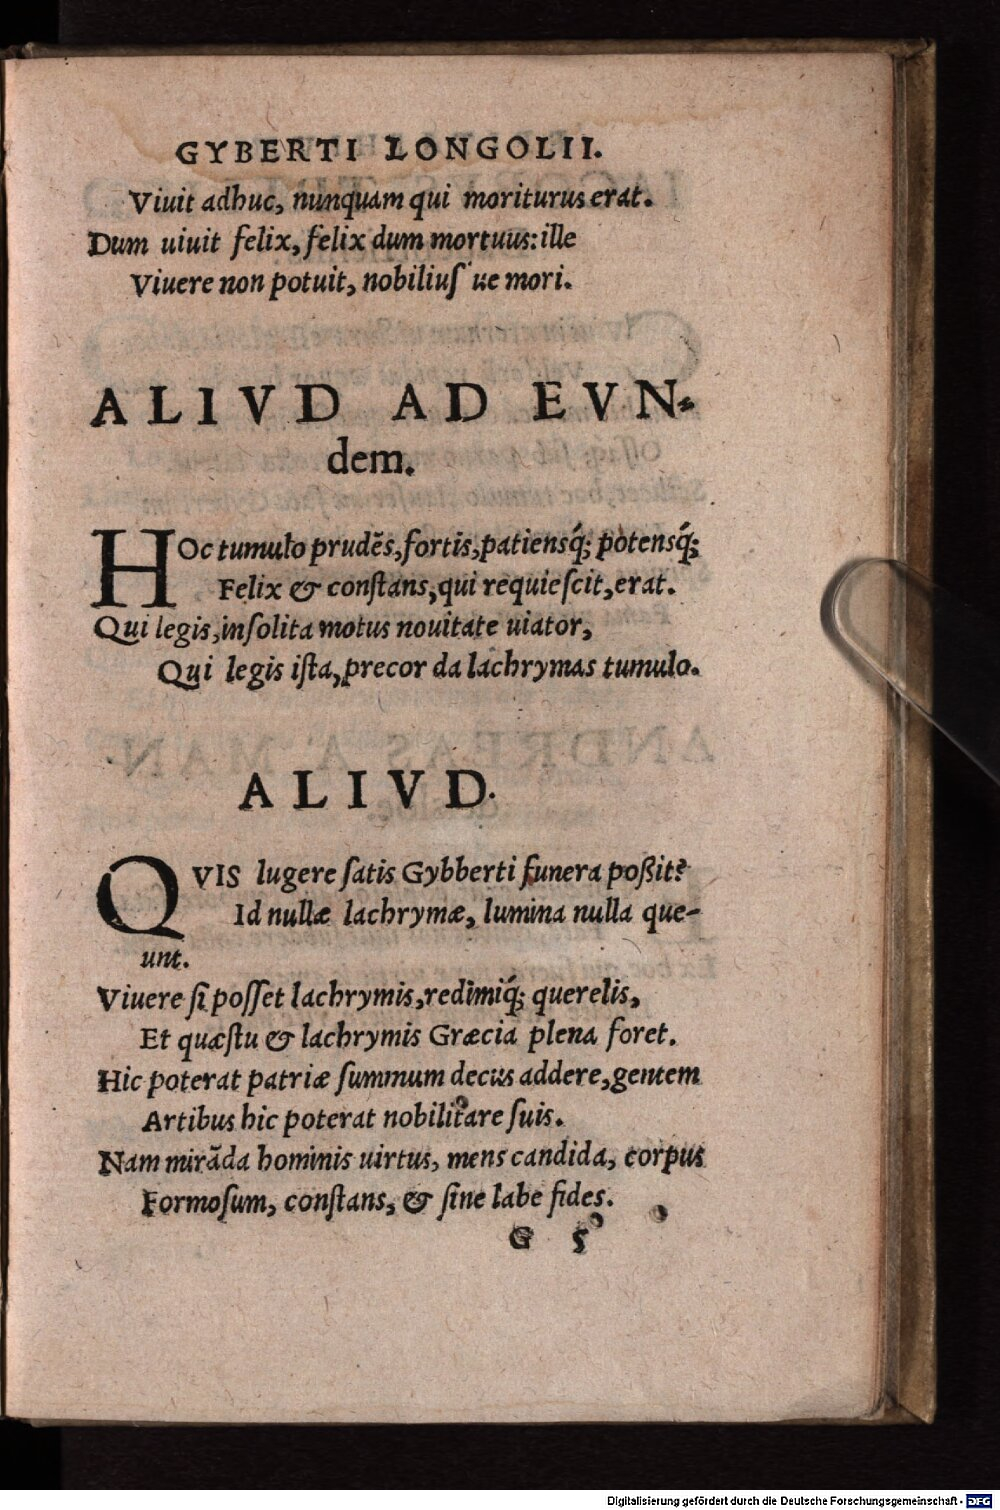 GYBERTI LONGOLII.
Viuit adhuc, nunquam qui moriturus erat.
Dum uiuit felix, felix dum mortuus: ille
Viuere non potuit, nobiliuſ ue mori.
ALIVD AD EVN-
dem.
HOc tumulo prudēs, fortis, patiensq́; potensq́;
Felix & conſtans, qui requieſcit, erat.
Qui legis, inſolita motus nouitate uiator,
Qui legis iſta, precor da lachrymas tumulo.
ALIVD.
QVIS lugere ſatis Gybberti funera poßit?
Id nullæ lachrymæ, lumina nulla que-
unt.
Viuere ſi poſſet lachrymis, redimiq́; querelis,
Et quæſtu & lachrymis Græcia plena foret.
Hic poterat patriæ ſummum decus addere, gentem
Artibus hic poterat nobilitare ſuis.
Nam mirāda hominis uirtus, mens candida, corpus
Formoſum, conſtans, & ſine labe fides.
G 5
Digitalisierung gefördert durch die Deutsche Forschungsgemeinschaft - DFG